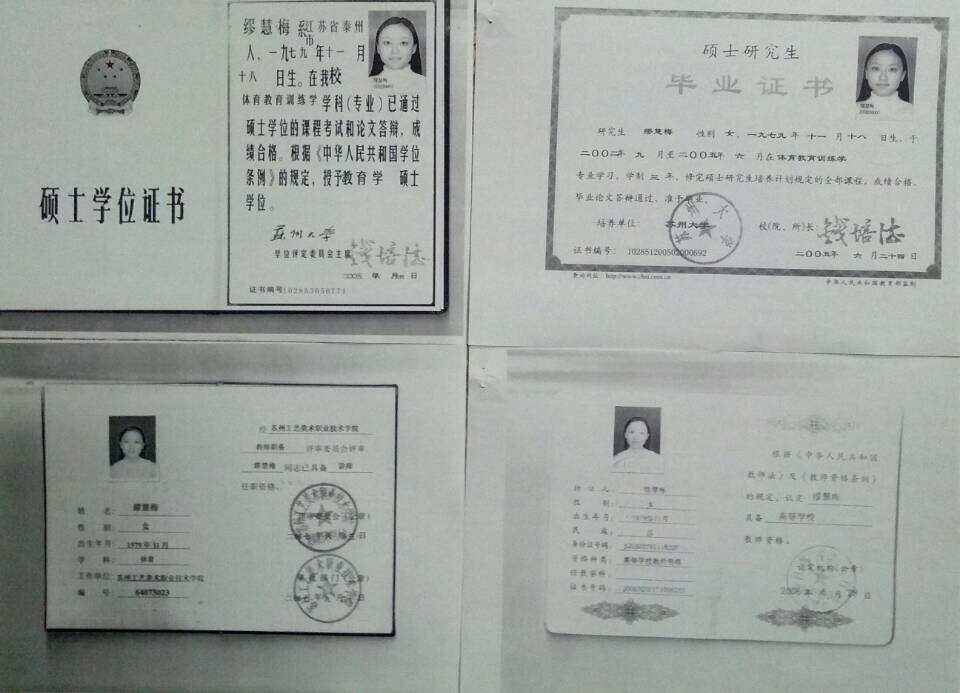 硕士学位证书
缪慧梅 系江苏省泰州市
人，一九七九年十一月
十八 日生。在我校
体育教育训练学 学科(专业)已通过
硕士学位的课程考试和论文答辩，成
绩合格。根据《中华人民共和国学位
条例》的规定，授予教育学 硕士
学位。
苏州大学
学位评定委员会主席 钱培德
二〇〇五 年 月 日
证书编号
硕士研究生
毕业证书
研究生 缪慧梅 性别 女，一九七九年 十一月 十八 日生，于
二〇〇二年 九 月至二〇〇五年 六 月在 体育教育训练学
专业学习，学制 三 年，修完硕士研究生培养计划规定的全部课程，成绩合格，
毕业论文答辩通过，准予毕业。
培养单位： 苏州大学 校(院、所)长： 钱培德
证书编号： 102851200502000692 二〇〇五年 六 月二十四日
查询网址：http://www.chsi.com.cn
中华人民共和国教育部监制
姓 名 缪慧梅
性 别 女
出生年月 1979年11月
学 科 体育
工作单位 苏州工艺美术职业技术学院
编 号 64075023
经 苏州工艺美术职业技术学院
教师职务 评审委员会评审，
缪慧梅 同志已具备 讲师
任职资格。
持 证 人 缪慧梅
性 别 女
出生年月
民 族
身份证号码
资格种类 高等学校教师资格
任教学科
证书号码
根据《中华人民共和国
教师法》及《教师资格条例》
的规定，认定 缪慧梅
具备 高等学校
教师资格。
认定机构(公章)
2006年 月28日